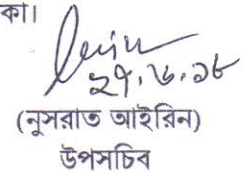 কা।
২৭.৬.১৮
(নুসরাত আইরিন)
উপসচিব